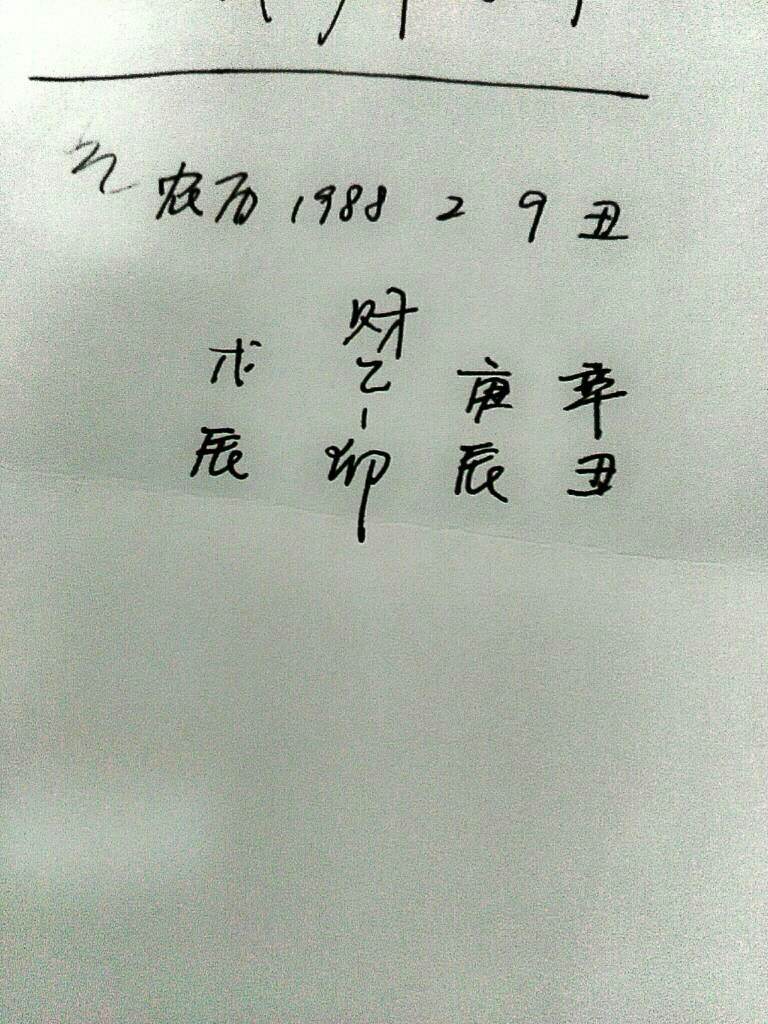 农历 1988 2 9 丑
财
戊 乙 庚 辛
辰 卯 辰 丑